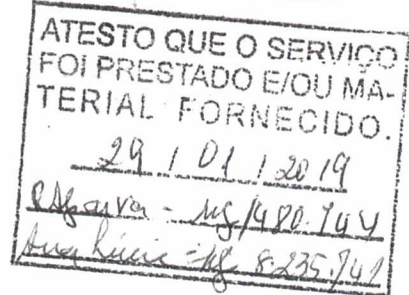 ATESTO QUE O SERVIÇO
FOI PRESTADO E/OU MA-
TERIAL FORNECIDO.
29 / 01 / 2019
- Mg /480.744
Ana Lúcia - Mg 8.235.741